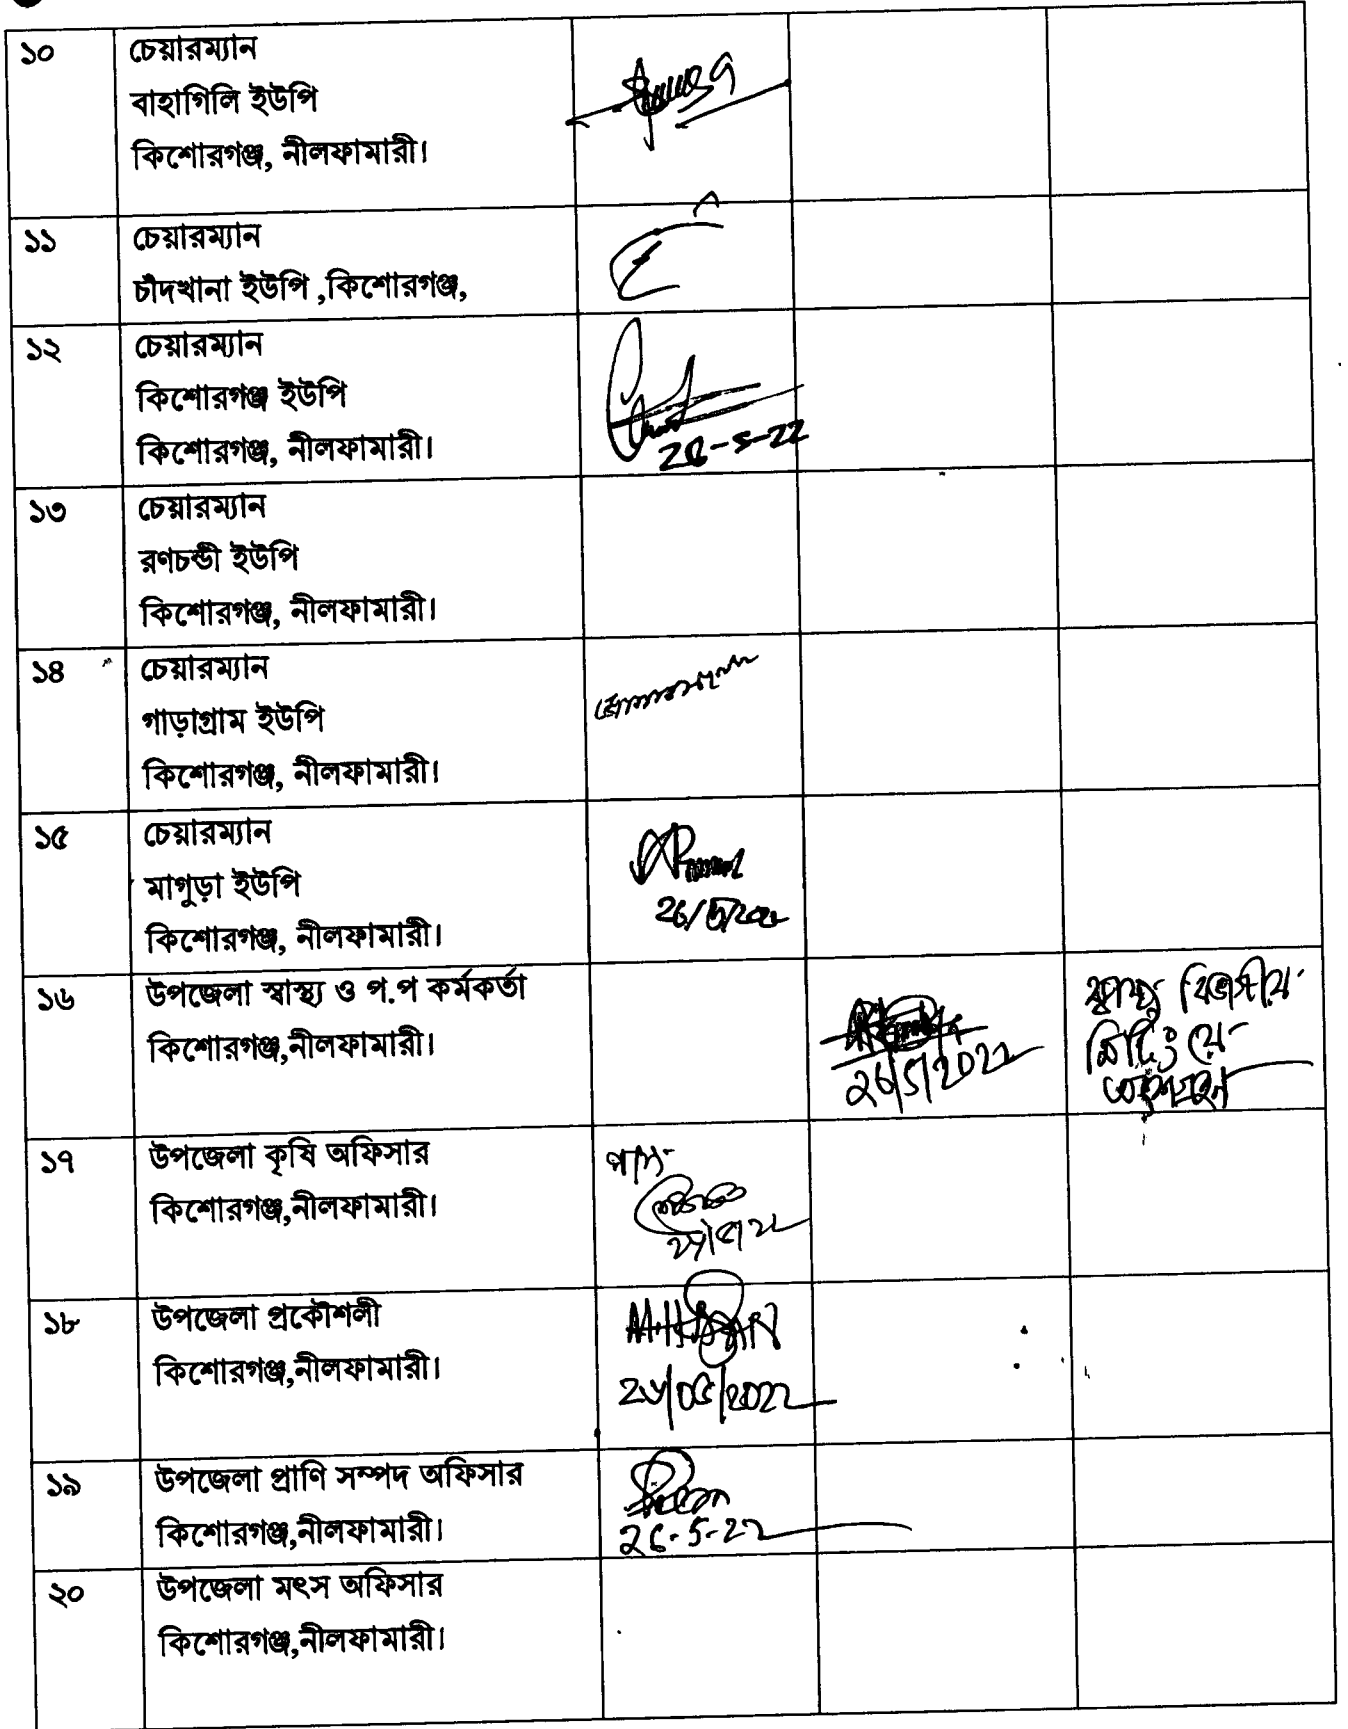 ১০
চেয়ারম্যান
বাহাগিলি ইউপি
কিশোরগঞ্জ, নীলফামারী।
১১
চেয়ারম্যান
চাঁদখানা ইউপি ,কিশোরগঞ্জ,
১২
চেয়ারম্যান
কিশোরগঞ্জ ইউপি
কিশোরগঞ্জ, নীলফামারী।
১৩
চেয়ারম্যান
রণচন্ডী ইউপি
কিশোরগঞ্জ, নীলফামারী।
১৪
চেয়ারম্যান
গাড়াগ্রাম ইউপি
কিশোরগঞ্জ, নীলফামারী।
১৫
চেয়ারম্যান
মাগুড়া ইউপি
কিশোরগঞ্জ, নীলফামারী।
26/5/2022
১৬
উপজেলা স্বাস্থ্য ও প.প কর্মকর্তা
কিশোরগঞ্জ,নীলফামারী।
26/5/2022
স্বাস্থ্য বিভাগীয়
মিটিং য়ে
অংশগ্রহণ
১৭
উপজেলা কৃষি অফিসার
কিশোরগঞ্জ,নীলফামারী।
১৮
উপজেলা প্রকৌশলী
কিশোরগঞ্জ,নীলফামারী।
26/05/2022
১৯
উপজেলা প্রাণি সম্পদ অফিসার
কিশোরগঞ্জ,নীলফামারী।
26-5-22
২০
উপজেলা মৎস অফিসার
কিশোরগঞ্জ,নীলফামারী।